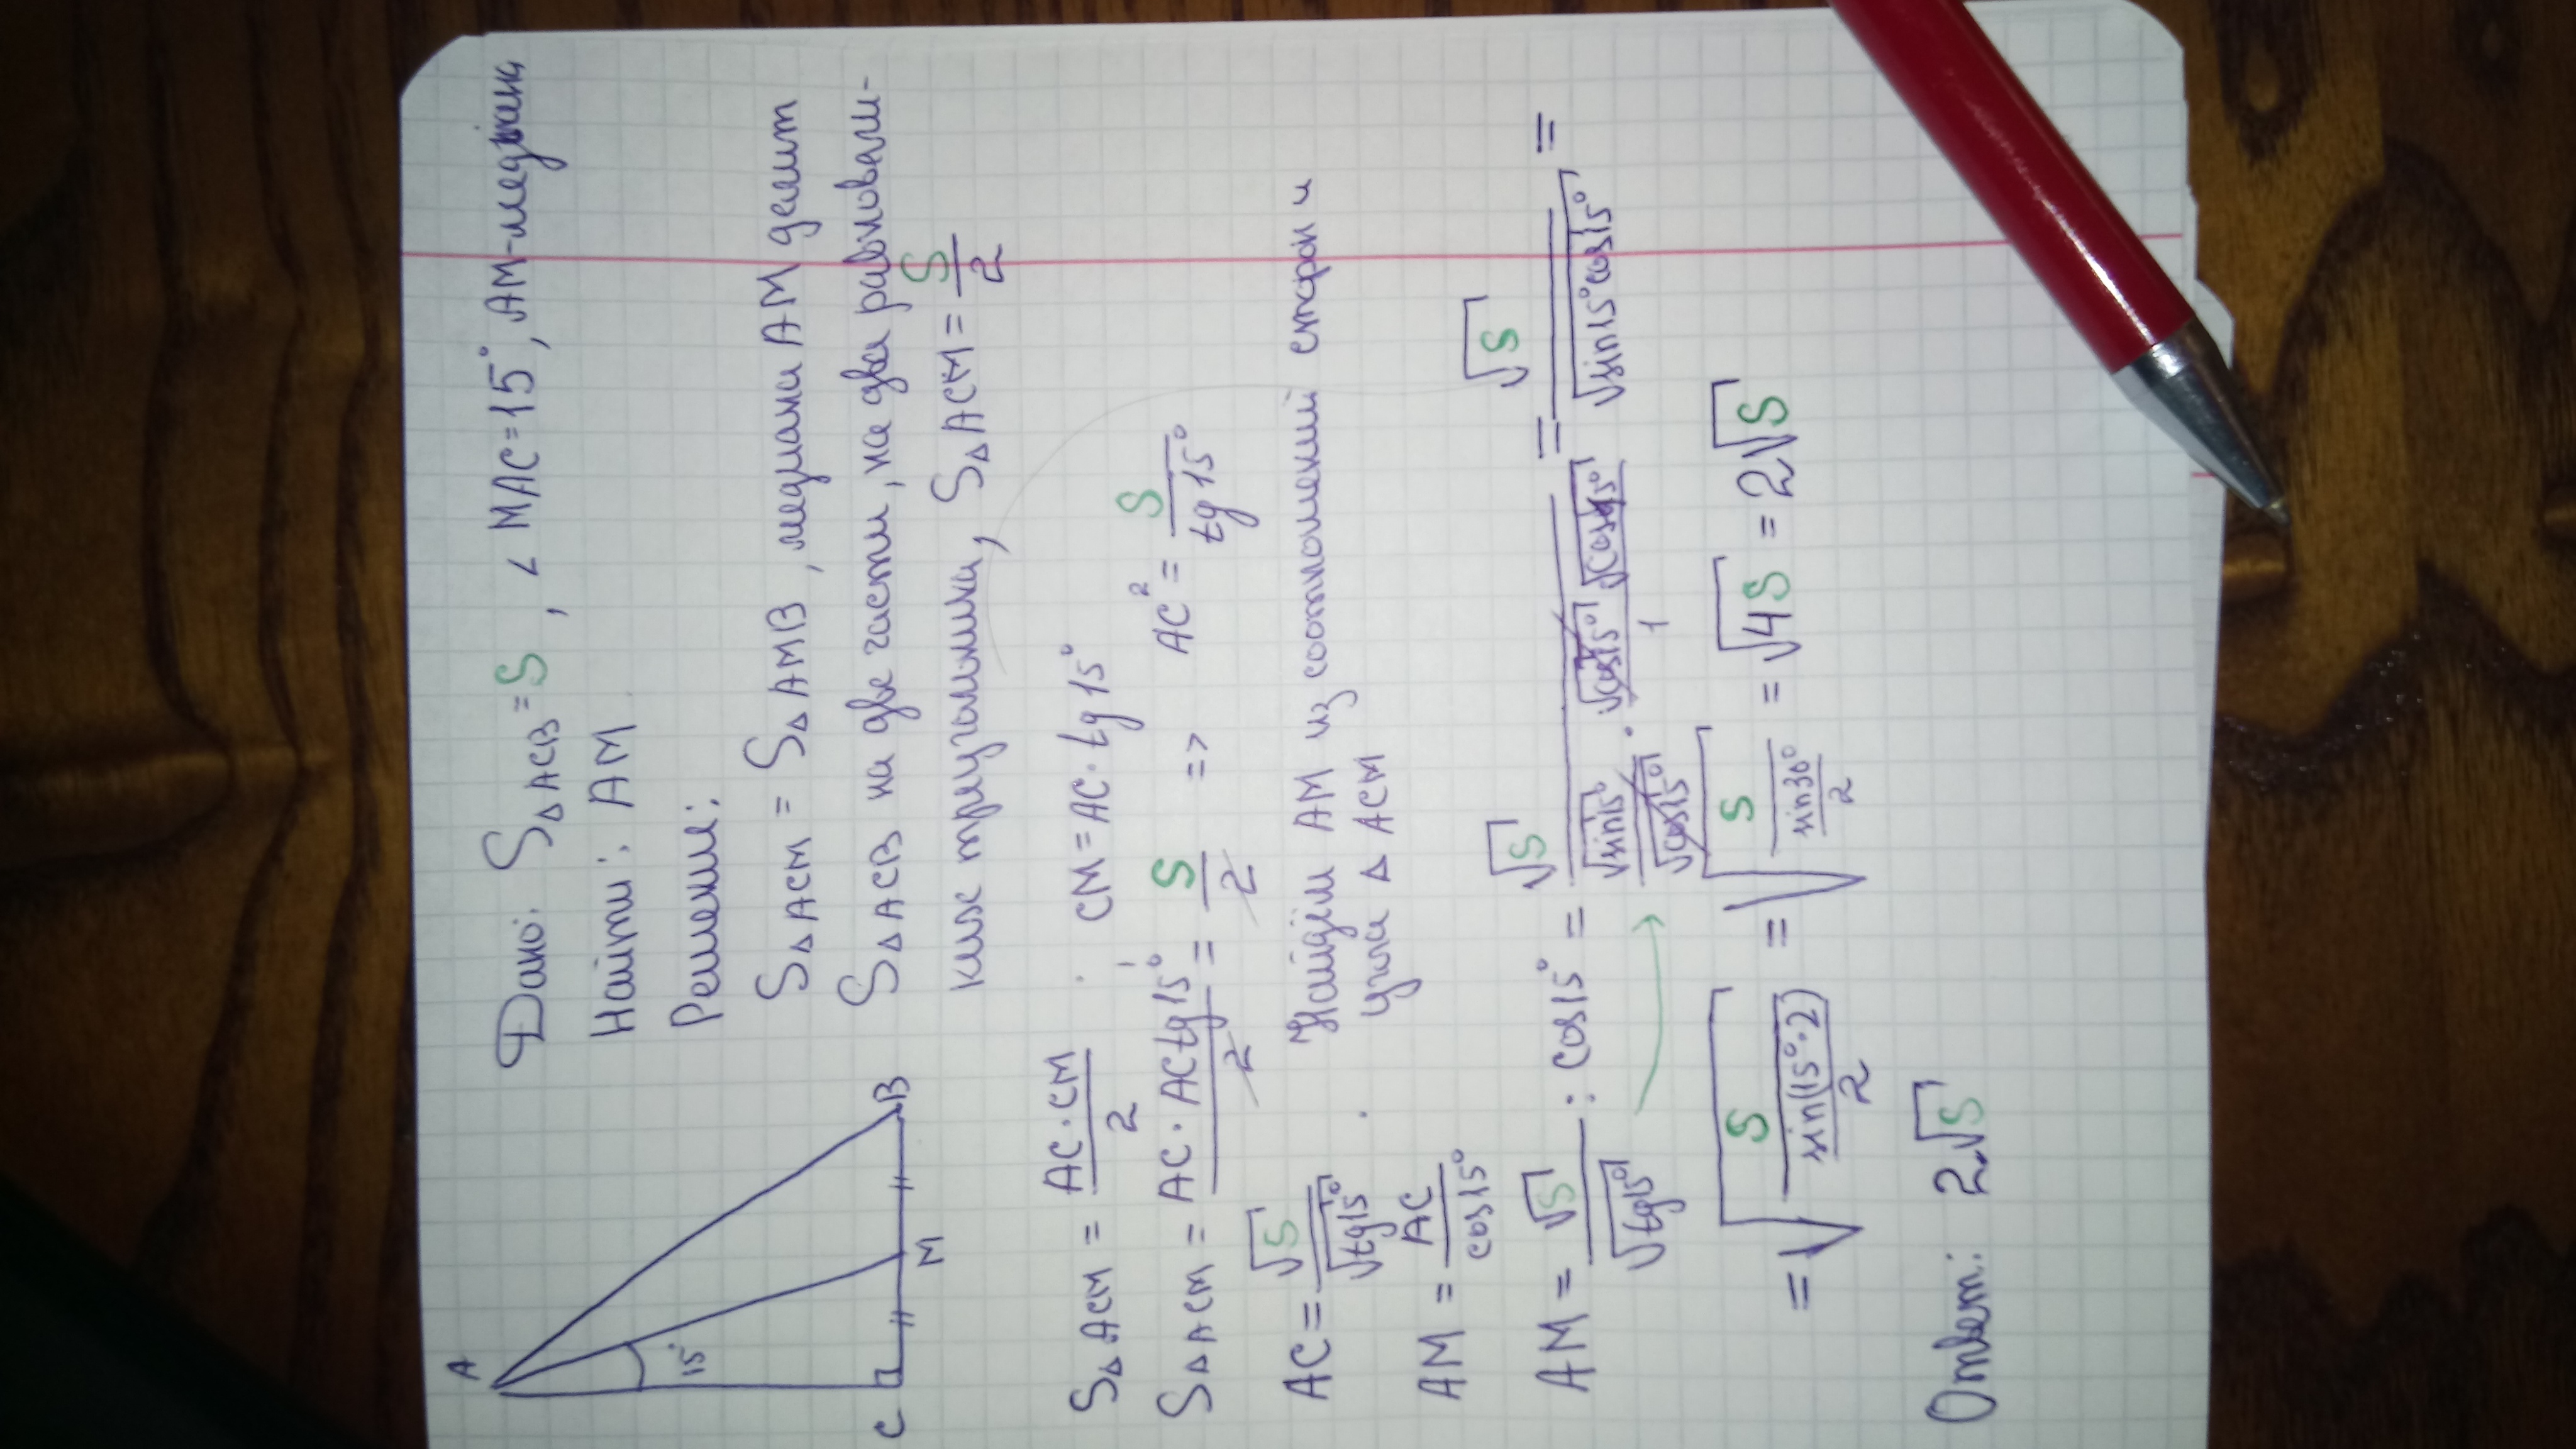 Дано: S△ACB = S, ∠MAC=15°, AM-медиана
Найти: AM
Решение:
S△ACM = S△AMB, медиана AM делит
S△ACB на две части, на два равновели-
ких треугольника, S△ACM = S/2
A
15°
C
M
B
S△ACM = AC·CM/2. CM = AC·tg15°
S△ACM = AC·ACtg15°/2 = S/2 => AC² = S/tg15°
AC = √S/√tg15°. Найдём AM из соотношений сторон и
угла △ACM
AM = AC/cos15°
AM = √S/√tg15° : cos15° = √S/(√sin15°/√cos15° · √cos15° √cos15°/1) = √S/√sin15°cos15° =
= √(S/(sin(15°·2)/2)) = √(S/(sin30°/2)) = √4S = 2√S
Ответ: 2√S